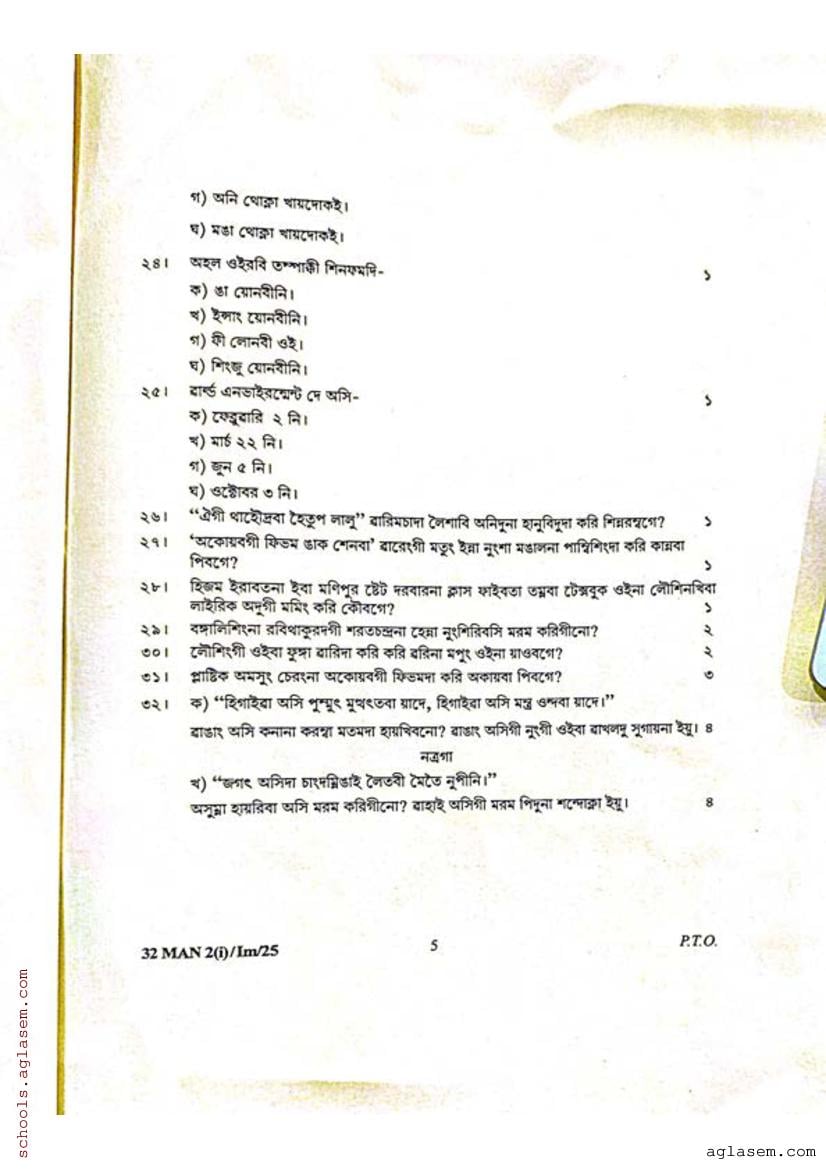 গ) অনি থোক্না খায়দোকই।
ঘ) মঙা থোক্না খায়দোকই।
২৪। অহল ওইরবি তম্পাক্কী শিনফমদি- ১
ক) ঙা য়োনবীনি।
খ) ইন্সাং য়োনবীনি।
গ) ফী লোনবী ওই।
ঘ) শিংজু য়োনবীনি।
২৫। ৱার্ল্ড এনভাইরন্মেন্ট দে অসি- ১
ক) ফেব্রুৱারি ২ নি।
খ) মার্চ ২২ নি।
গ) জুন ৫ নি।
ঘ) ওক্টোবর ৩ নি।
২৬। “ঐগী থাহৌদ্রবা হৈতুপ লালু” ৱারিমচাদা লৈশাবি অনিদুনা হানুবিদুদা করি শিন্নরম্বগে? ১
২৭। ‘অকোয়বগী ফিভম ঙাক শেনবা’ ৱারেংগী মতুং ইন্না নুংশা মঙালনা পাম্বিশিংদা করি কান্নবা
পিবগে? ১
২৮। হিজম ইরাবতনা ইবা মণিপুর ষ্টেট দরবারনা ক্লাস ফাইবতা তম্নবা টেক্সবুক ওইনা লৌশিনখিবা
লাইরিক অদুগী মমিং করি কৌবগে? ১
২৯। বঙ্গালিশিংনা রবিথাকুরদগী শরতচন্দ্রনা হেন্না নুংশিরিবসি মরম করিগীনো? ২
৩০। লৌশিংগী ওইবা ফুঙ্গা ৱারিদা করি করি ৱরিনা মপুং ওইনা য়াওবগে? ২
৩১। প্লাষ্টিক অমসুং চেরংনা অকোয়বগী ফিভমদা করি অকায়বা পিবগে? ৩
৩২। ক) “হিগাইৱা অসি পুম্মুৎ মুত্থৎতবা য়াদে, হিগাইৱা অসি মন্ত্র ওন্দবা য়াদে।”
ৱাঙাং অসি কনানা করম্বা মতমদা হায়খিবনো? ৱাঙাং অসিগী নুংগী ওইবা ৱাখলদু সুগায়না ইয়ু। ৪
নত্ৰগা
খ) “জগৎ অসিদা চাংদম্নিঙাই লৈতবী মৈতৈ নুপীনি।”
অসুম্না হায়রিবা অসি মরম করিগীনো? ৱাহাই অসিগী মরম পিদুনা শন্দোক্না ইয়ু। ৪
32 MAN 2(i)/Im/25 5 P.T.O.
schools.aglasem.com
aglasem.com